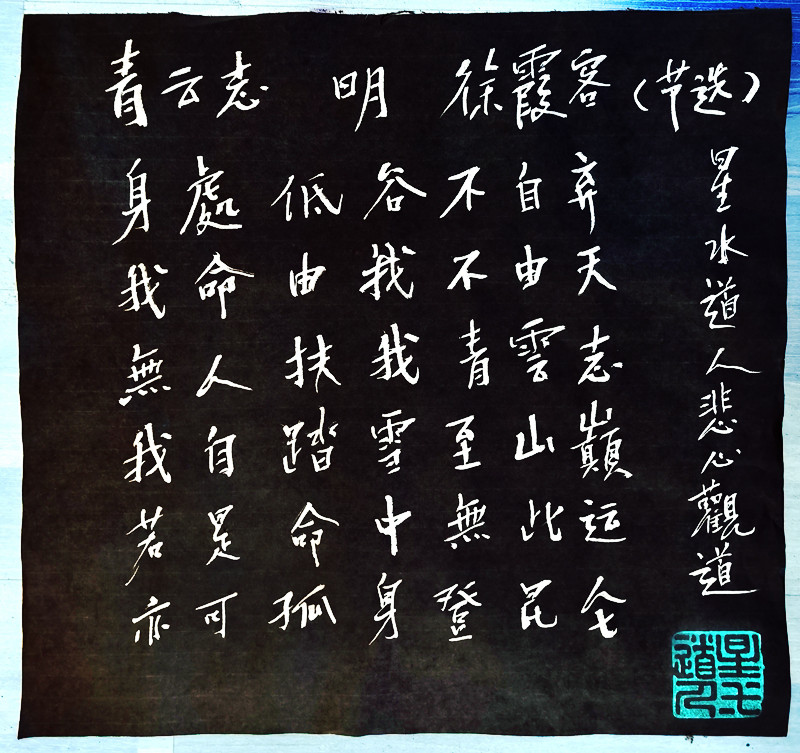 青云志 明 徐霞客（节选）
身處低谷不自弃
我命由我不由天
無人扶我青雲志
我自踏雪至山巔
若是命中無此运
亦可孤身登昆仑
星水道人悲心觀道